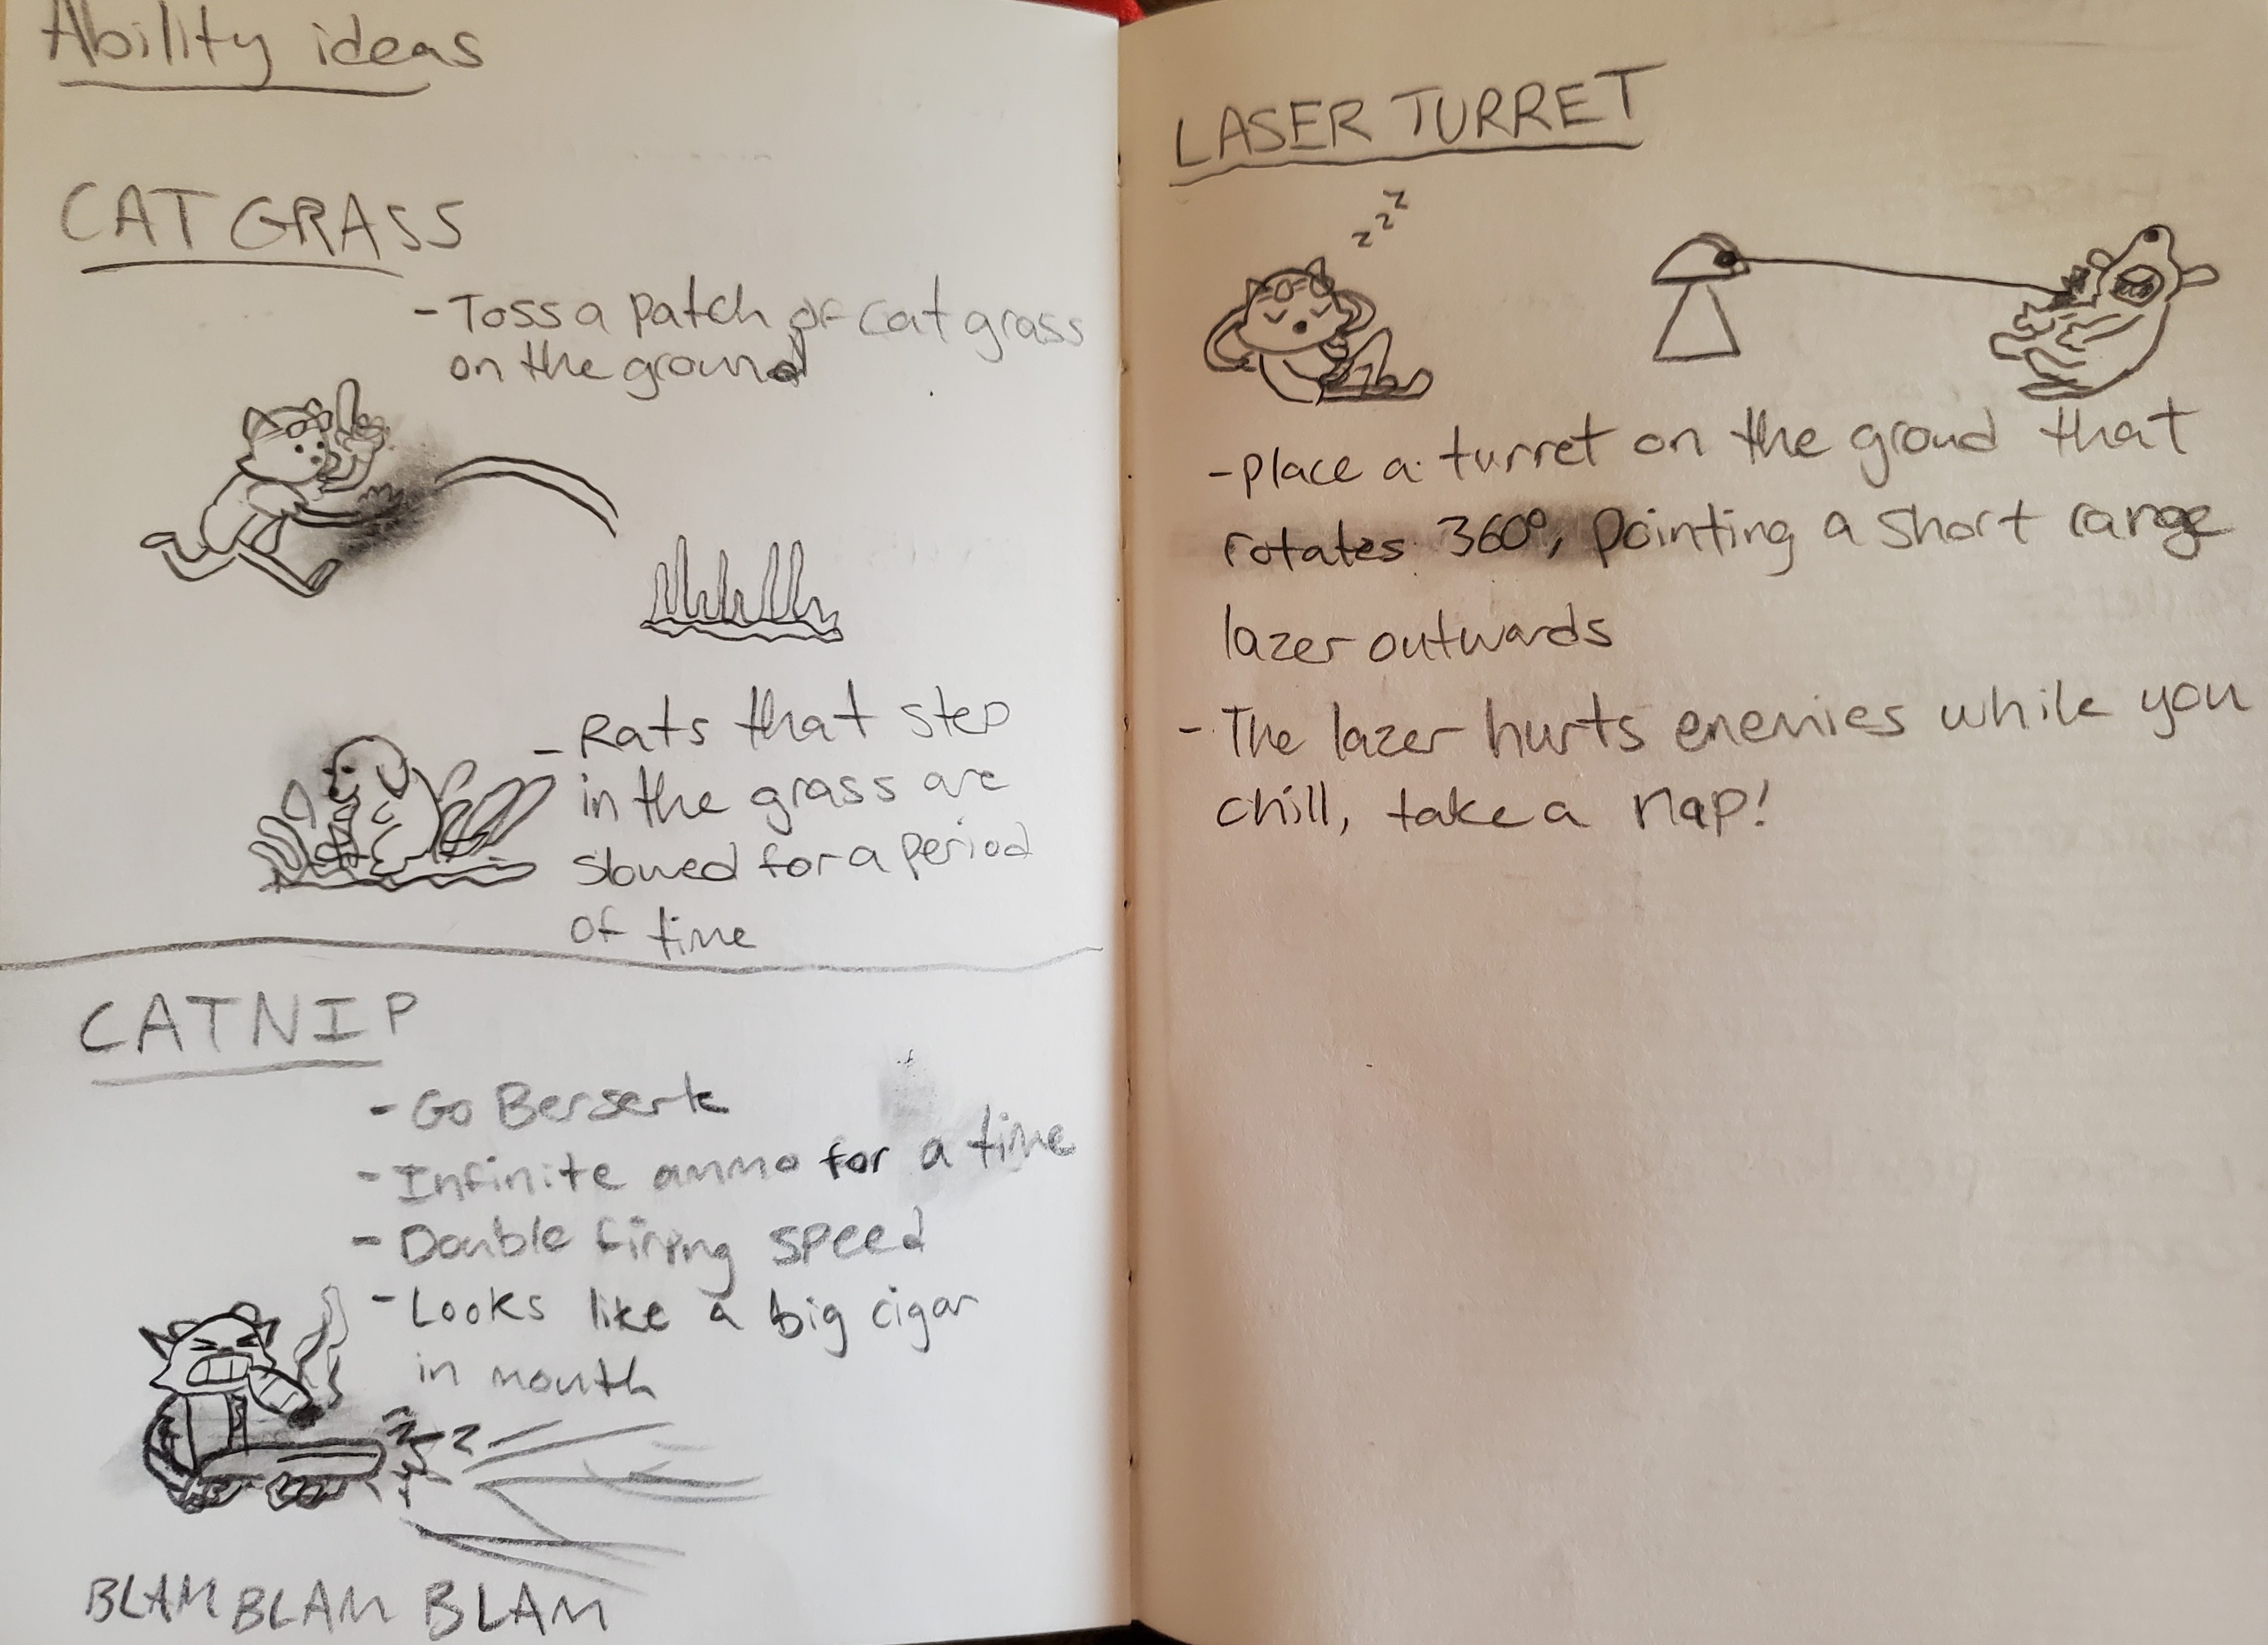 Ability ideas
CAT GRASS
- Toss a patch of cat grass
on the ground
- Rats that step
in the grass are
slowed for a period
of time
CATNIP
- Go Berserk
- Infinite ammo for a time
- Double firing speed
- Looks like a big cigar
in mouth
BLAM BLAM BLAM
LASER TURRET
z z z
- Place a turret on the groud that
rotates 360°, pointing a short range
lazer outwards
- The lazer hurts enemies while you
chill, take a nap!